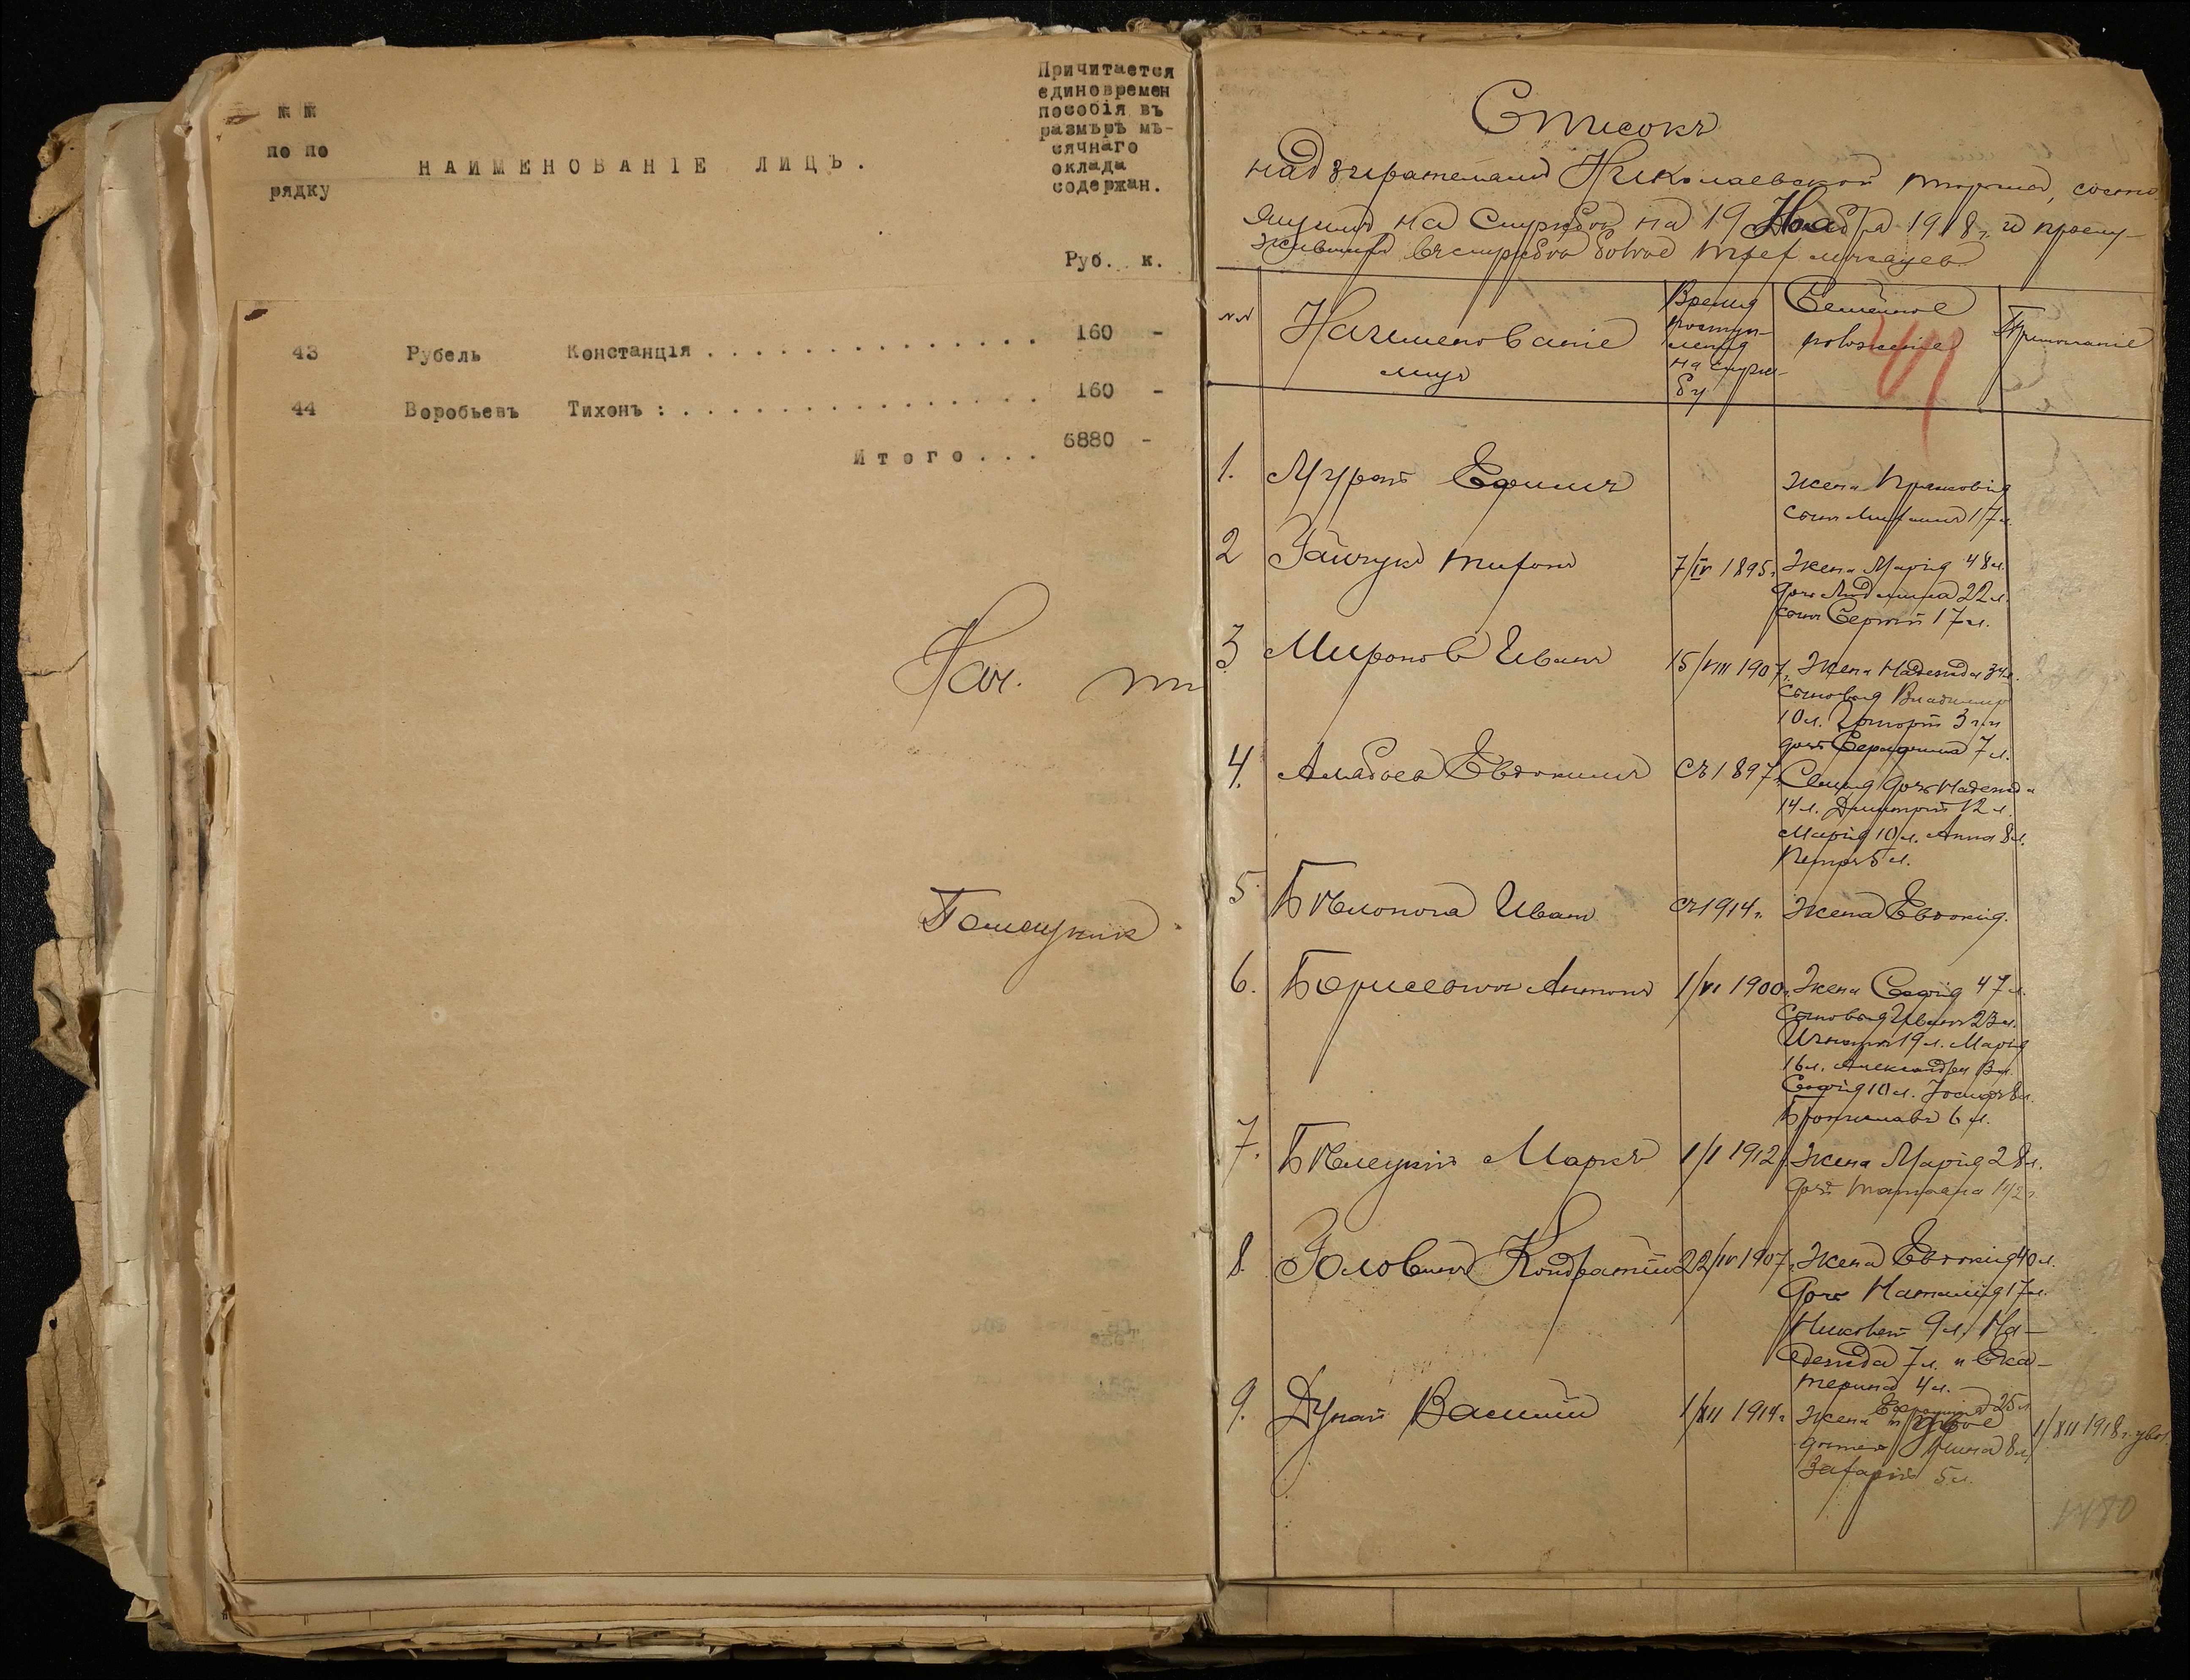 № №
по по
рядку
НАИМЕНОВАНІЕ ЛИЦЪ.
Причитается
единовремен
пособія въ
размѣрѣ мѣ-
сячнаго
оклада
содержан.
Руб. к.
43 Рубель Констанція . . . . . . . . . . . . . . 160 -
44 Воробьевъ Тихонъ : . . . . . . . . . . . . . . . 160 -
Итого... 6880 -
Нач.
Помощник
Списокъ
надзирателямъ Николаевской тюрьмы, состо
ящимъ на службѣ на 19 Ноября 1918 г. и прослу-
жившимъ въ службѣ болѣе трех мѣсяцевъ
№№
Наименованіе
лицъ
Время
поступ-
ленія
на служ-
бу
Семейное
положеніе
Примечаніе
1. Ефимъ
Жена Прасковія
сынъ 17 л.
2 Тихонъ 7/IV 1895 г. Жена Марія 48 л.
дочь Людмила 22 л.
сынъ Сергѣй 17 л.
3 Миронов Иванъ 15/VIII 1907 г. Жена Надежда 34 л.
сыновья Владимир
10 л. Григорій 3 л. и
дочь Серафима 7 л.
4. Евдокимъ съ 1897 г. Семья дочь Надежда
14 л. Дмитрій 12 л.
Марія 10 л. Анна 8 л.
Петръ 5 л.
5 Бѣлопола Иван съ 1914 г. Жена Евдокія.
6. Борисевичъ Антонъ 1/VI 1900 г. Жена Софія 47 л.
Сыновья Иванъ 23 л.
Игнатій 19 л. Марія
16 л. Александръ 13 л.
Софія 10 л. Іосифъ 8 л.
Брониславъ 6 л.
7. Бѣлецкій Маркъ 1/I 1912 г. Жена Марія 28 л.
дочь Татьяна 1 1/2 г.
8. Головинъ Кондратій 22/IV 1907 г. Жена Евдокія 40 л.
дочь Наталія 17 л.
9 л. На-
дежда 7 л. и Ека-
терина 4 л.
9. Дунай Василій 1/XII 1914 г. Жена Ефросинія 25 л.
и двое
дѣтей Нина 8 л. 1/XII 1918 г. увол.
Захарій 5 л.